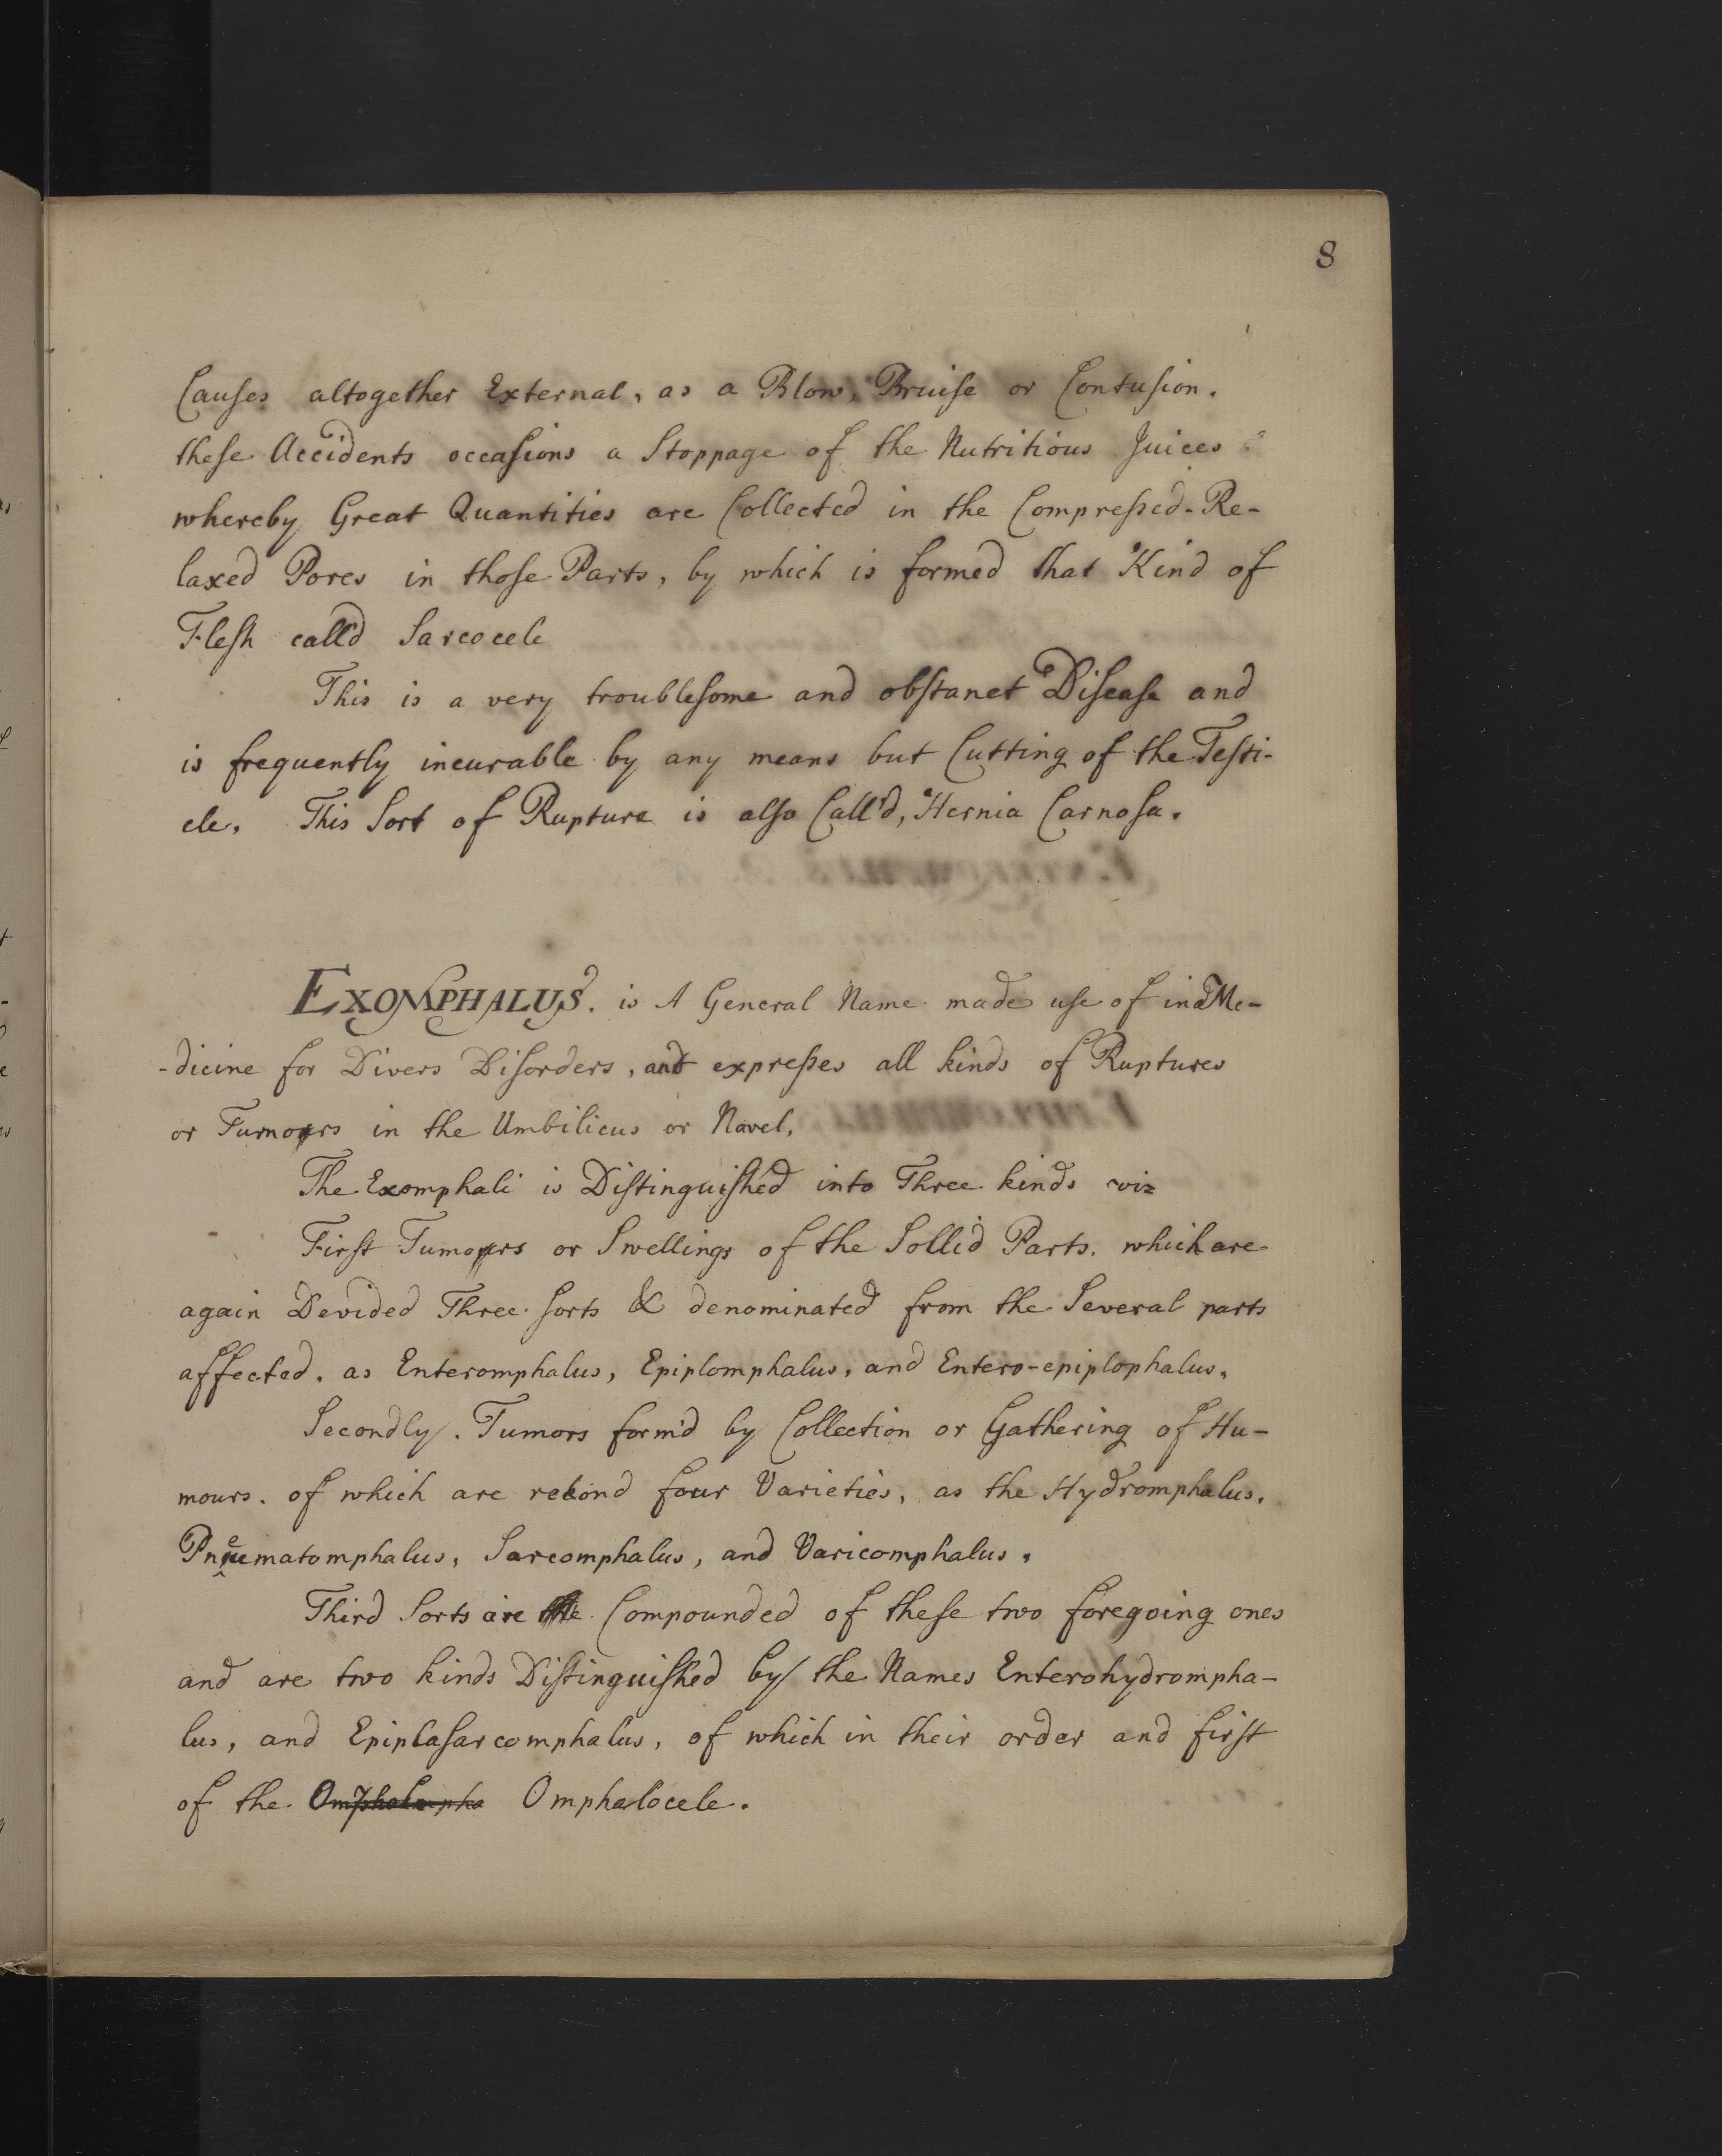 8
Causes altogether External, as a Blow, Bruise or Contusion.
these Accidents occasions a Stoppage of the Nutritious Juices
whereby Great Quantities are Collected in the Compressed-Re-
laxed Pores in those Parts, by which is formed that Kind of
Flesh call'd Sarcocele
This is a very troublesome and obstanet Disease and
is frequently incurable by any means but Cutting of the Testi-
cle. This Sort of Rupture is also Call'd, Hernia Carnosa.
EXOMPHALUS. is A General Name made use of in Me-
-dicine for Divers Disorders, and expresses all kinds of Ruptures
or Tumors in the Umbilicus or Navel,
The Exomphali is Distinguish'd into Three kinds viz
First Tumors or Swellings of the Sollid Parts. which are
again Devided Three sorts & denominated from the Several parts
affected. as Enteromphalus, Epiplomphalus, and Entero-epiplophalus,
Secondly. Tumors form'd by Collection or Gathering of Hu-
mours. of which are rekond four Varieties, as the Hydromphalus,
Pneumatomphalus, Sarcomphalus, and Varicomphalus.
Third Sorts are the Compounded of these two foregoing ones
and are two kinds Distinguished by the Names Enterohydrompha-
lus, and Epiplasarcomphalus, of which in their order and first
of the Omphalopha Omphalocele.